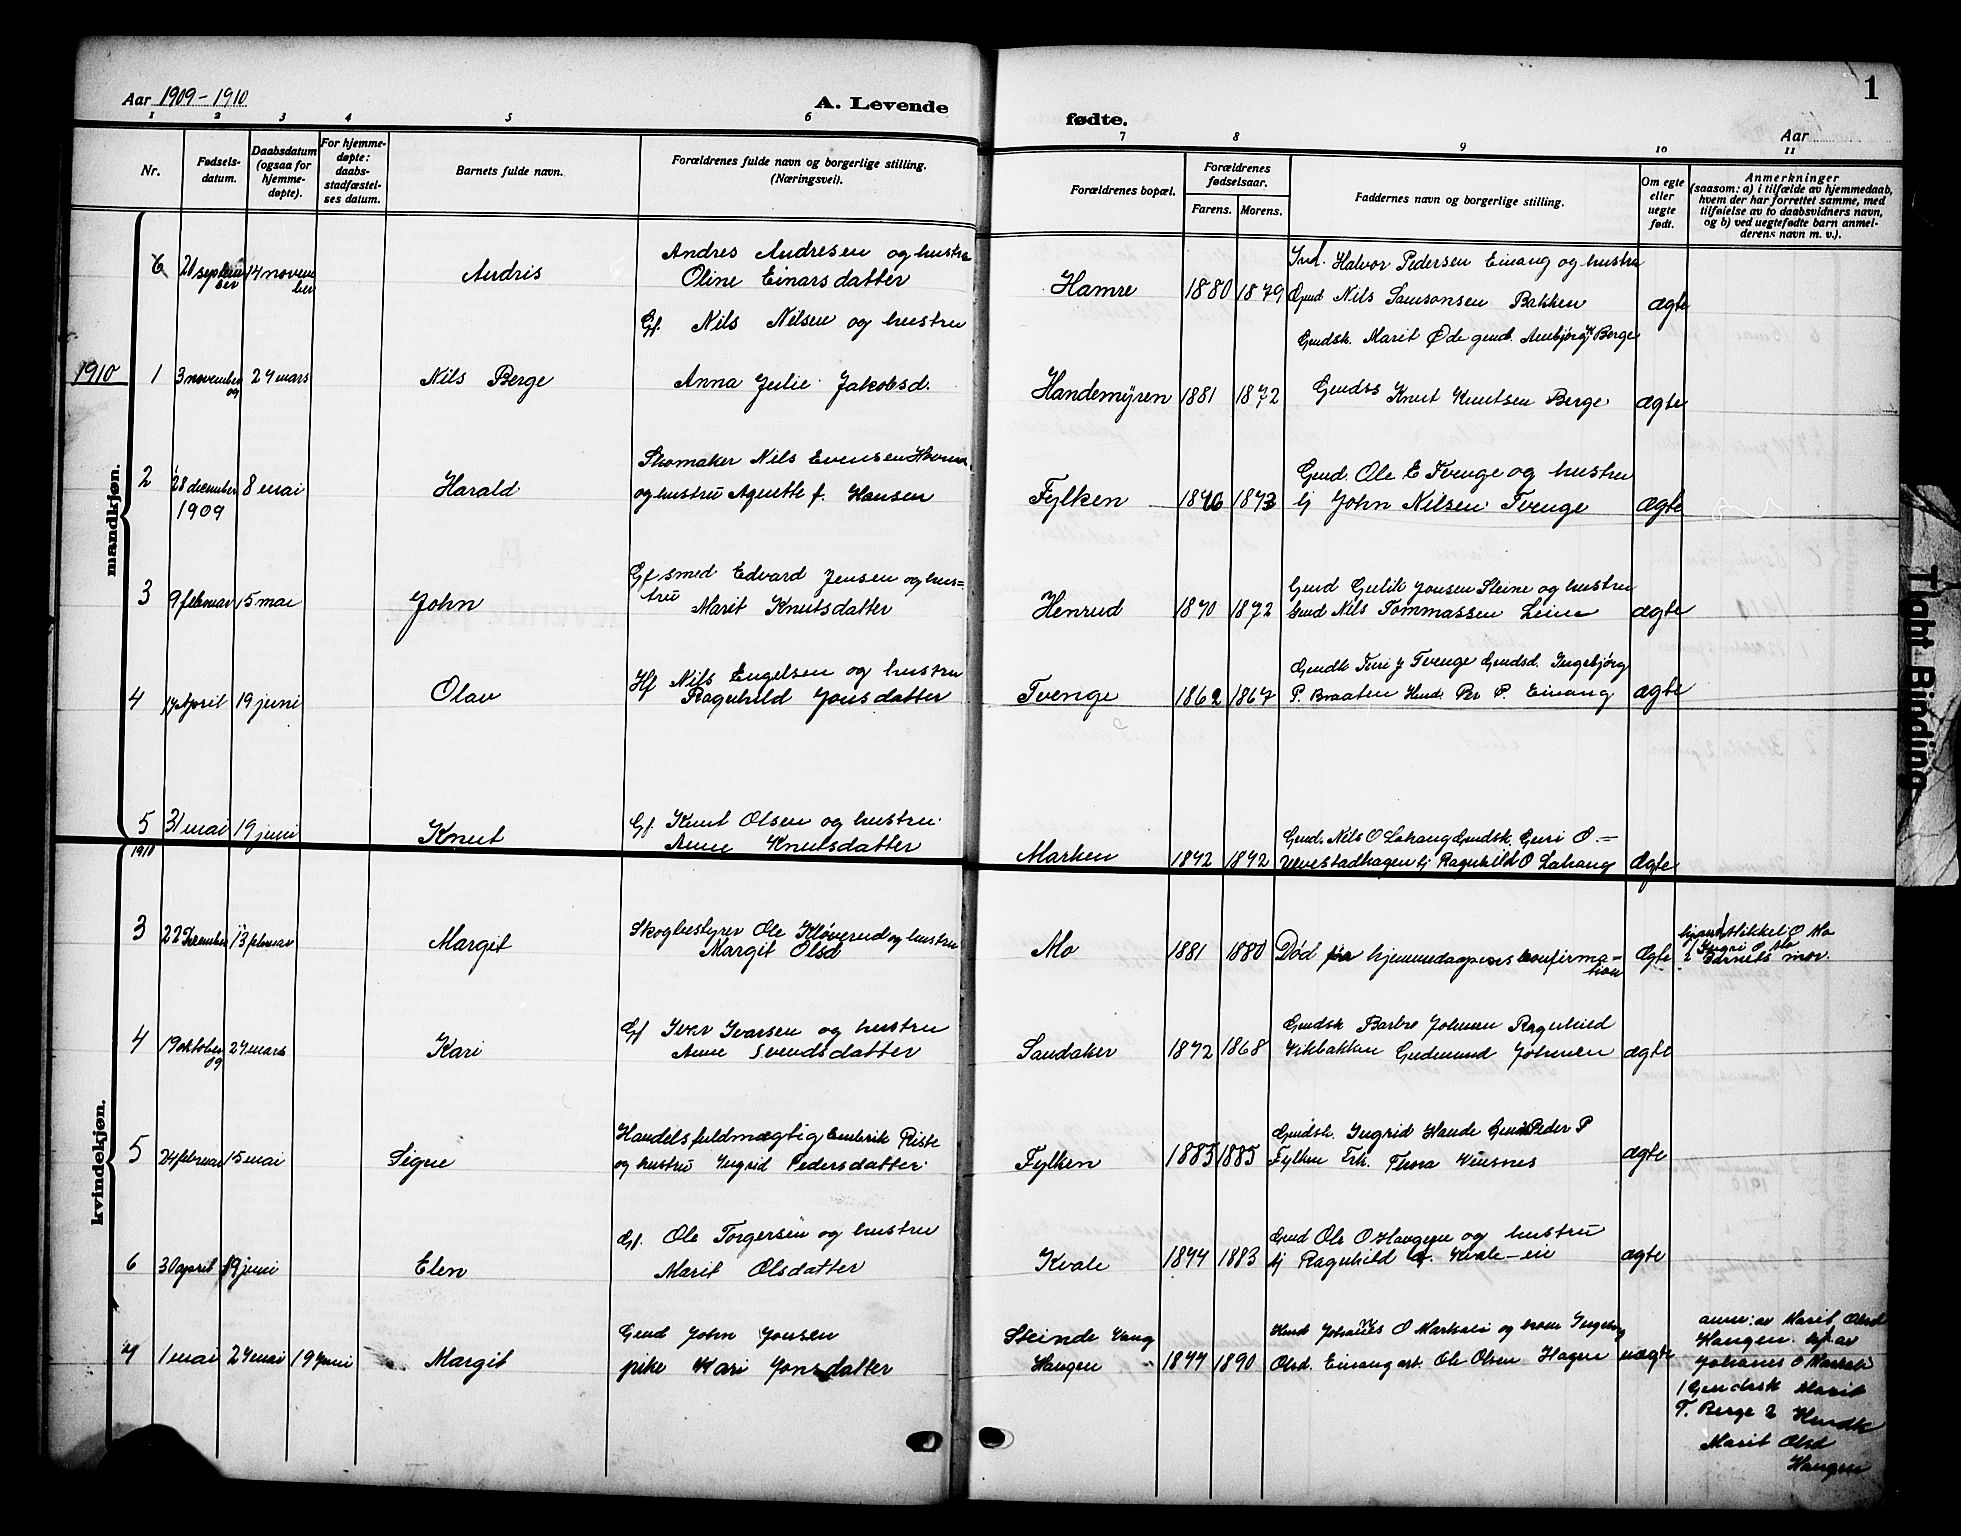 1
Aar 1909-1910
A. Levende fødte.
Aar
1 2 3 4 5 6 7 8 9 10 11
Nr.
Fødsels-
datum.
Daabsdatum
(ogsaa for
hjemme-
døpte).
For hjemme-
døpte:
daabs-
stadfæstel-
ses datum.
Barnets fulde navn.
Forældrenes fulde navn og borgerlige stilling.
(Næringsvei).
Forældrenes bopæl.
Forældrenes
fødselsaar.
Farens. Morens.
Faddernes navn og borgerlige stilling.
Om egte
eller
uegte
født.
Anmerkninger
(saasom: a) i tilfælde av hjemmedaab,
hvem der har forrettet samme, med
tilføielse av to daabsvidners navn,
og b) ved uegtefødte barn anmel-
derens navn m. v.).
mandkjøn.
6 Andris
Andres Andresen og hustru
Oline Einarsdatter
Hamre 1880 1879
Halvor Pedersen Einang og hustru
Gmd Nils Samsonsen Bakken
Gmdsk. Marit Øde gmd. Berge
ægte
1910
1 3 november 09 27 mars Nils Berge
Gf. Nils Nilsen og hustru
Anna Julie Jakobsd.
Handemyren 1881 1872
Knut Knutsen Berge
ægte
2 28 december 1909 8 mai Harald
Skomaker Nils Evensen
og hustru Agnethe f. Hansen
Fylken 1873
Gmd. Ole E Tvenge og hustru
tj John Nilsen Tvenge
ægte
3 9 februar 15 mai John
Gf smed Edvard Jensen og hus=
tru Marit Knutsdatter
Henrud 1870 1872
Gmd Gulik Jonsen Steine og hustru
Gmd Nils Tommassen Leine
ægte
4 17 April 19 juni Olav
Hf Nils Engelsen og hustru
Ragnhild Jonsdatter
Tvenge 1862 1867
Gmdsk Turi J Tvenge Gmdsd. Ingebjørg
P. Braaten Per P. Einang
ægte
5 31 mai 19 juni Knut
Gf. Knut Olsen og hustru
Anne Knutsdatter
Marken 1872 1872
Gmd. Nils O Lahaug Gmdsk. Guri O =
tj Ragnhild O Lahaug
ægte
kvindekjøn.
1910
3 22 December 13 februar Margit
Skogbestyrer Ole Kløverud og hustru
Margit Olsd
Mo 1881 1880
Død før hjemmedaapens konfirma=
tion
Ægte
Mikkel O Mo
1 Ingri O Mo
2 Barnets mor.
4 19 oktober 09 27 mars Kari
Gf Iver Ivarsen og hustru
Anne Svendsdatter
Sandaker 1872 1868
Gmdsk Barbro Johnsen Ragnhild
Vikbakken Gudmund Johnsen
ægte
5 24 februar 15 mai Signe
Handelsfuldmægtig Embrik Riste
og hustru Ingrid Pedersdatter
Fylken 1883 1885
Gmdsk. Ingrid Hande Peder P
Fylken Frk. Thora
ægte
6 30 april 19 juni Elen
Gf. Ole Torgersen og hustru
Marit Olsdatter
Kvale 1877 1883
Gmd Ole O Haugene og hustru
tj Ragnhild Kvale-eie
ægte
7 1 mai 27 mai 19 juni Margit
Gmd John Jonsen
pike Kari Jonsdatter
Steinde Vang
Haugen 1877 1890
Johanes O og kone Ingeborg
Olsd. Einang Ole Olsen Hagen
uægte
anm: av Marit Olsd
Haugen. av
Johanes O
1 Gmdsk Marit
T. Berge 2
Marit Olsd
Haugen
Tight Binding